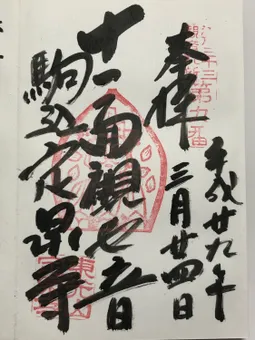 奉拝
平成廿九年
三月廿四日
十一面觀世音
駒込定泉寺